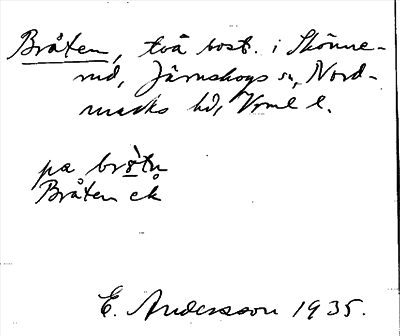 Bråten, två bost. i Skönne-
rud, Järnskogs sn, Nord-
marks hd, Vrml l.
pa brò̱tn̥
Bråten ek
E. Andersson 1935.